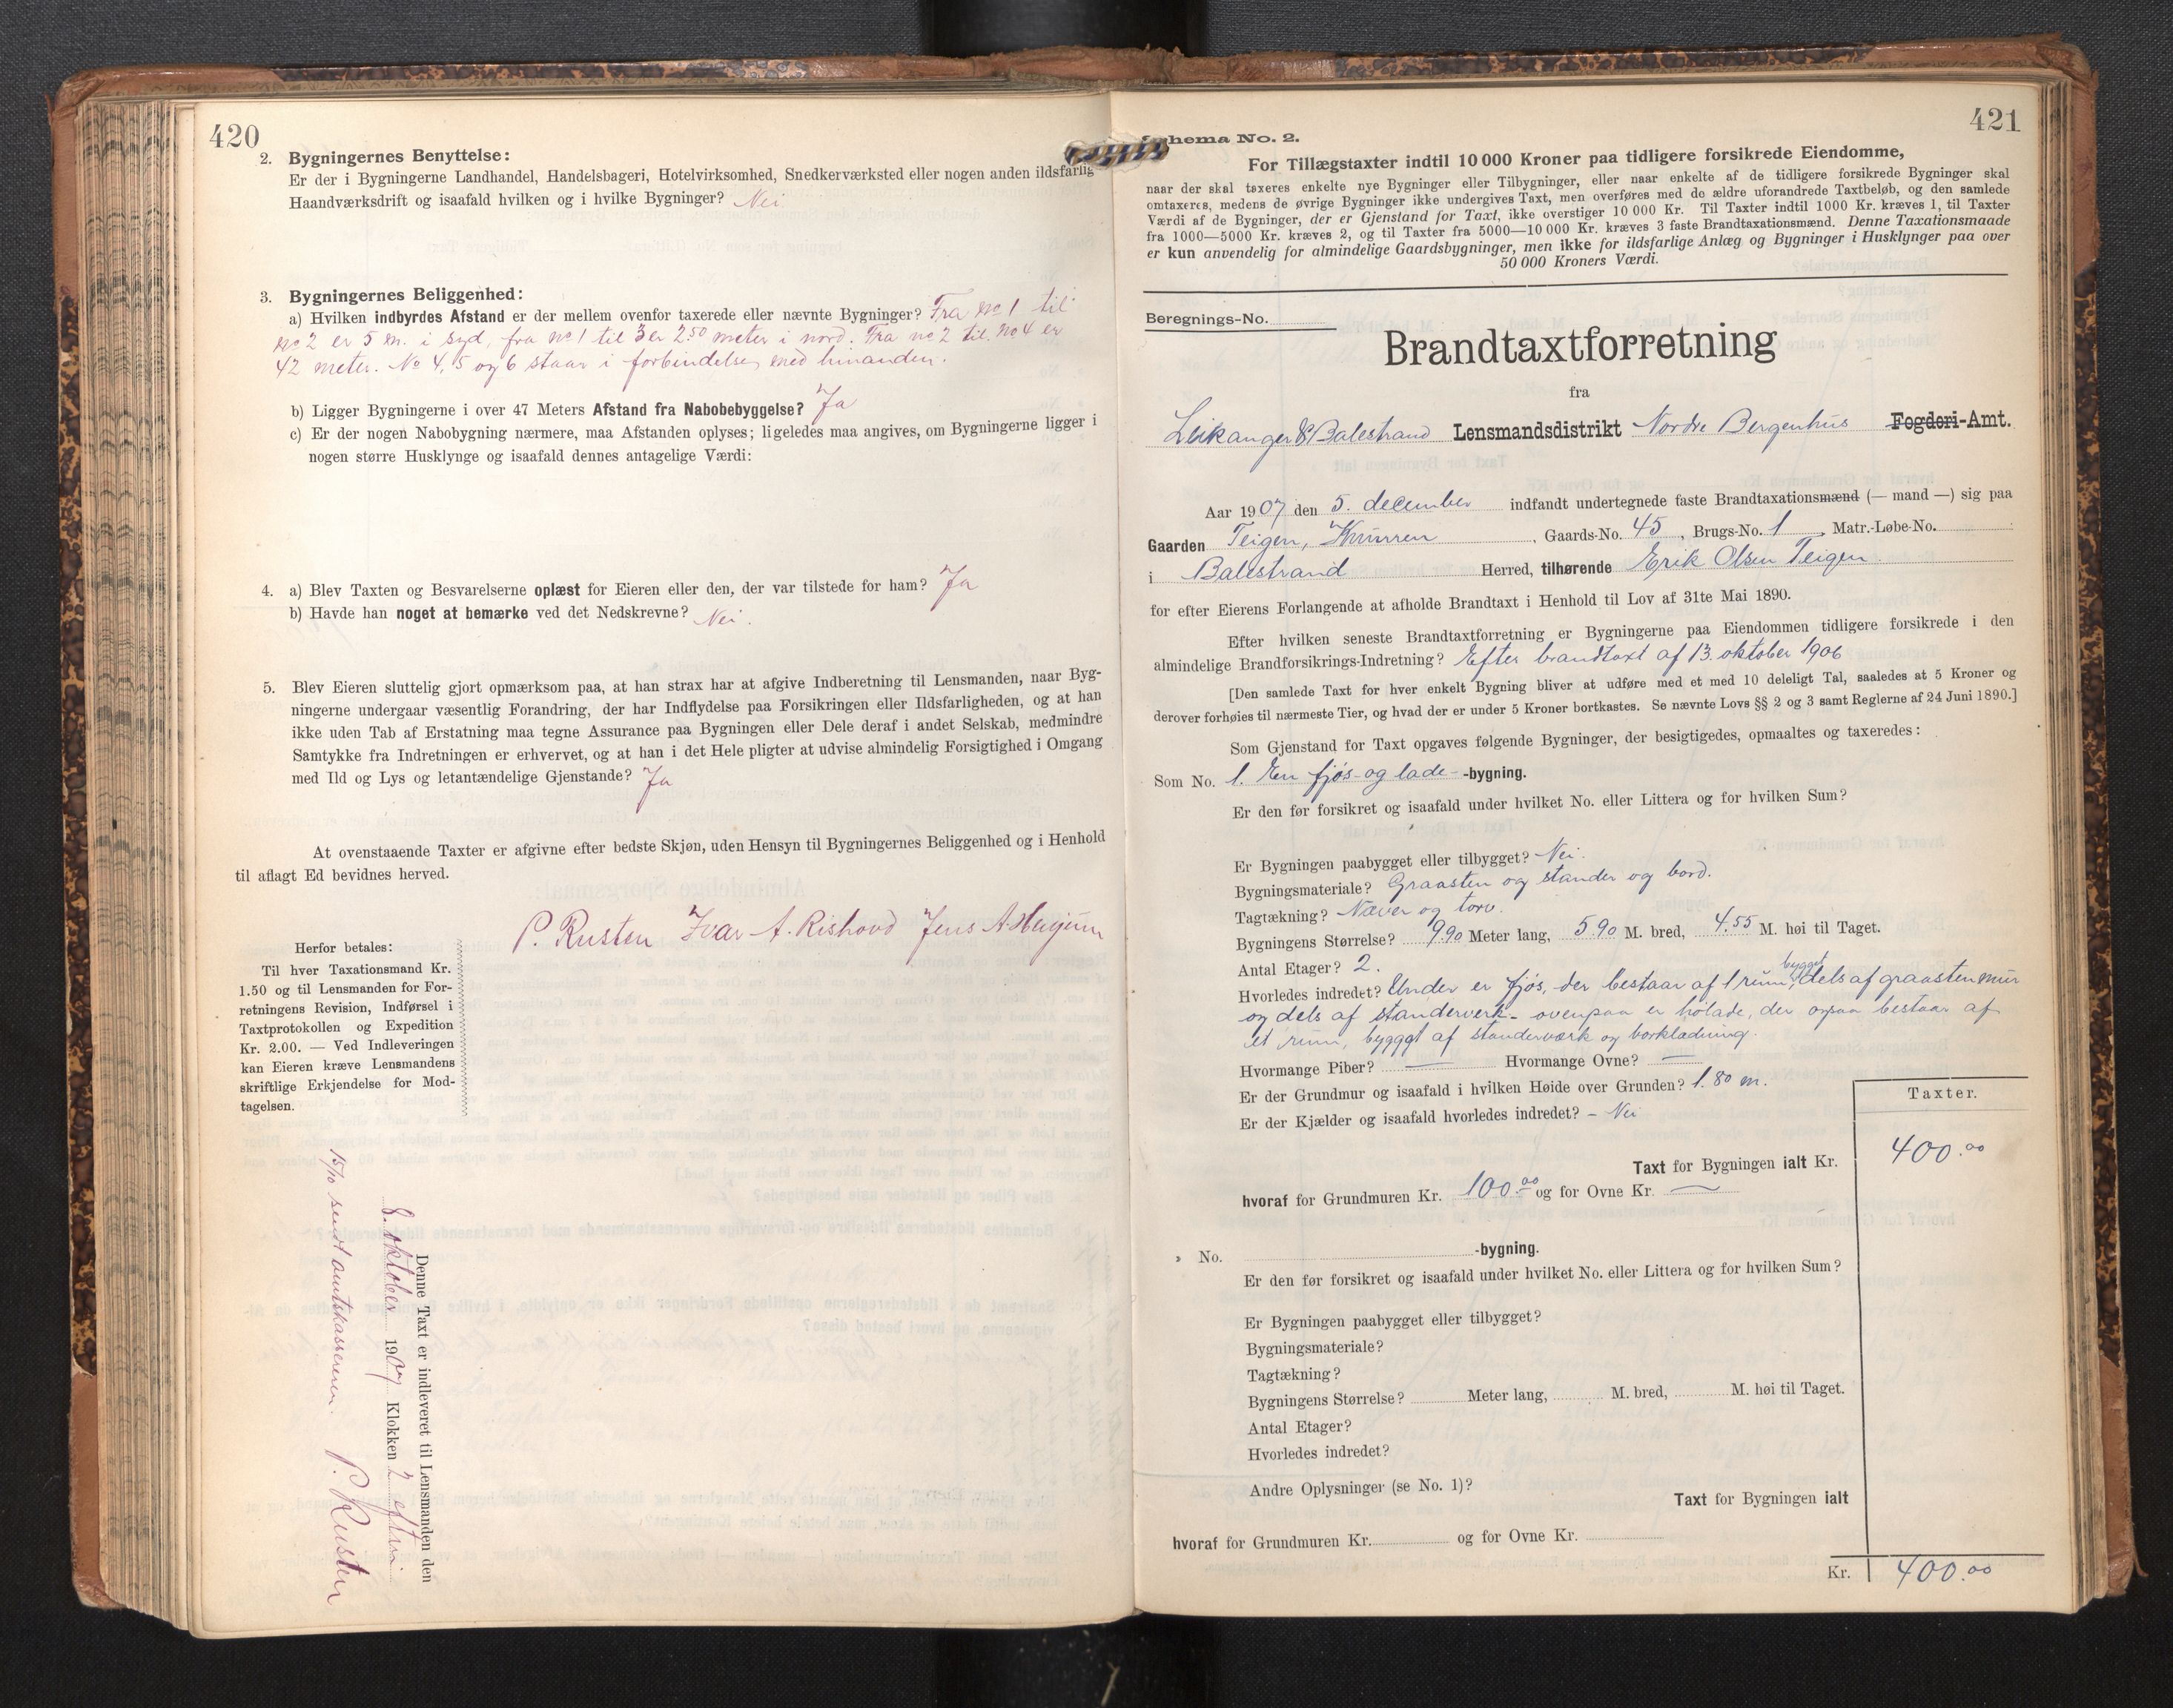 420
2. Bygningernes Benyttelse:
Er der i Bygningerne Landhandel, Handelsbageri, Hotelvirksomhed, Snedkerværksted eller nogen anden ildsfarlig
Haandværksdrift og isaafald hvilken og i hvilke Bygninger? Nei
3. Bygningernes Beliggenhed:
a) Hvilken indbyrdes Afstand er der mellem ovenfor taxerede eller nævnte Bygninger? Fra no 1 til
no 2 er 5 m. i syd, fra no 1 til 3 er 2.50 meter i nord. Fra no 2 til no 4 er
42 meter. No 4, 5 og 6 staar i forbindelse med hinanden.
b) Ligger Bygningerne i over 47 Meters Afstand fra Nabobebyggelse? Ja
c) Er der nogen Nabobygning nærmere, maa Afstanden oplyses; ligeledes maa angives, om Bygningerne ligger i
nogen større Husklynge og isaafald dennes antagelige Værdi:
4. a) Blev Taxten og Besvarelserne oplæst for Eieren eller den, der var tilstede for ham? Ja
b) Havde han noget at bemærke ved det Nedskrevne? Nei.
5. Blev Eieren sluttelig gjort opmærksom paa, at han strax har at afgive Indberetning til Lensmanden, naar Byg-
ningerne undergaar væsentlig Forandring, der har Indflydelse paa Forsikringen eller Ildsfarligheden, og at han
ikke uden Tab af Erstatning maa tegne Assurance paa Bygningen eller Dele deraf i andet Selskab, medmindre
Samtykke fra Indretningen er erhvervet, og at han i det Hele pligter at udvise almindelig Forsigtighed i Omgang
med Ild og Lys og letantændelige Gjenstande? Ja
At ovenstaaende Taxter er afgivne efter bedste Skjøn, uden Hensyn til Bygningernes Beliggenhed og i Henhold
til aflagt Ed bevidnes herved.
P. Rusten Ivar A. Rishovd Jens A.
Herfor betales:
Til hver Taxationsmand Kr.
1.50 og til Lensmanden for For-
retningens Revision, Indførsel i
Taxtprotokollen og Expedition
Kr. 2.00. — Ved Indleveringen
kan Eieren kræve Lensmandens
skriftlige Erkjendelse for Mod-
tagelsen.
Denne Taxt er indleveret til Lensmanden den
8. oktober 1907 Klokken 2 eftm
15/10 sendt amtskassereren. P. Rusten
421
Schema No. 2.
For Tillægstaxter indtil 10 000 Kroner paa tidligere forsikrede Eiendomme,
naar der skal taxeres enkelte nye Bygninger eller Tilbygninger, eller naar enkelte af de tidligere forsikrede Bygninger skal
omtaxeres, medens de øvrige Bygninger ikke undergives Taxt, men overføres med de ældre uforandrede Taxtbeløb, og den samlede
Værdi af de Bygninger, der er Gjenstand for Taxt, ikke overstiger 10 000 Kr. Til Taxter indtil 1000 Kr. kræves 1, til Taxter
fra 1000—5000 Kr. kræves 2, og til Taxter fra 5000—10 000 Kr. kræves 3 faste Brandtaxationsmænd. Denne Taxationsmaade
er kun anvendelig for almindelige Gaardsbygninger, men ikke for ildsfarlige Anlæg og Bygninger i Husklynger paa over
50 000 Kroners Værdi.
Beregnings-No.
Brandtaxtforretning
fra
Leikanger & Balestrand Lensmandsdistrikt Nordre Bergenhus Fogderi-Amt.
Aar 1907 den 5. december indfandt undertegnede faste Brandtaxationsmænd (— mand —) sig paa
Gaarden Teigen, , Gaards-No. 45, Brugs-No. 1, Matr.-Løbe-No.
i Balestrand Herred, tilhørende Erik Olsen Teigen
for efter Eierens Forlangende at afholde Brandtaxt i Henhold til Lov af 31te Mai 1890.
Efter hvilken seneste Brandtaxtforretning er Bygningerne paa Eiendommen tidligere forsikrede i den
almindelige Brandforsikrings-Indretning? Efter brandtaxt af 13. oktober 1906
[Den samlede Taxt for hver enkelt Bygning bliver at udføre med et med 10 deleligt Tal, saaledes at 5 Kroner og
derover forhøies til nærmeste Tier, og hvad der er under 5 Kroner bortkastes. Se nævnte Lovs §§ 2 og 3 samt Reglerne af 24 Juni 1890.]
Som Gjenstand for Taxt opgaves følgende Bygninger, der besigtigedes, opmaaltes og taxeredes:
Som No. 1. En fjøs- og lade- -bygning.
Er den før forsikret og isaafald under hvilket No. eller Littera og for hvilken Sum?
Er Bygningen paabygget eller tilbygget? Nei.
Bygningsmateriale? Graasten og stander og bord.
Tagtækning? Næver og torv.
Bygningens Størrelse? 9.90 Meter lang, 5.90 M. bred, 4.55 M. høi til Taget.
Antal Etager? 2.
Hvorledes indredet? Under er fjøs, der bestaar af 1 rum, bygget dels af graastenmur
og dels af standerverk - ovenpaa er hølade, der ogsaa bestaar af
et rum, byggt af standerværk og bordkledning.
Hvormange Piber? — Hvormange Ovne? —
Er der Grundmur og isaafald i hvilken Høide over Grunden? 1.80 m.
Er der Kjælder og isaafald hvorledes indredet? - Nei
Taxter.
Taxt for Bygningen ialt Kr. 400.00
hvoraf for Grundmuren Kr. 100.00 og for Ovne Kr. —
» No. -bygning.
Er den før forsikret og isaafald under hvilket No. eller Littera og for hvilken Sum?
Er Bygningen paabygget eller tilbygget?
Bygningsmateriale?
Tagtækning?
Bygningens Størrelse? Meter lang, M. bred, M. høi til Taget.
Antal Etager?
Hvorledes indredet?
Andre Oplysninger (se No. 1)?
Taxt for Bygningen ialt
hvoraf for Grundmuren Kr. og for Ovne Kr.
Kr. 400.00